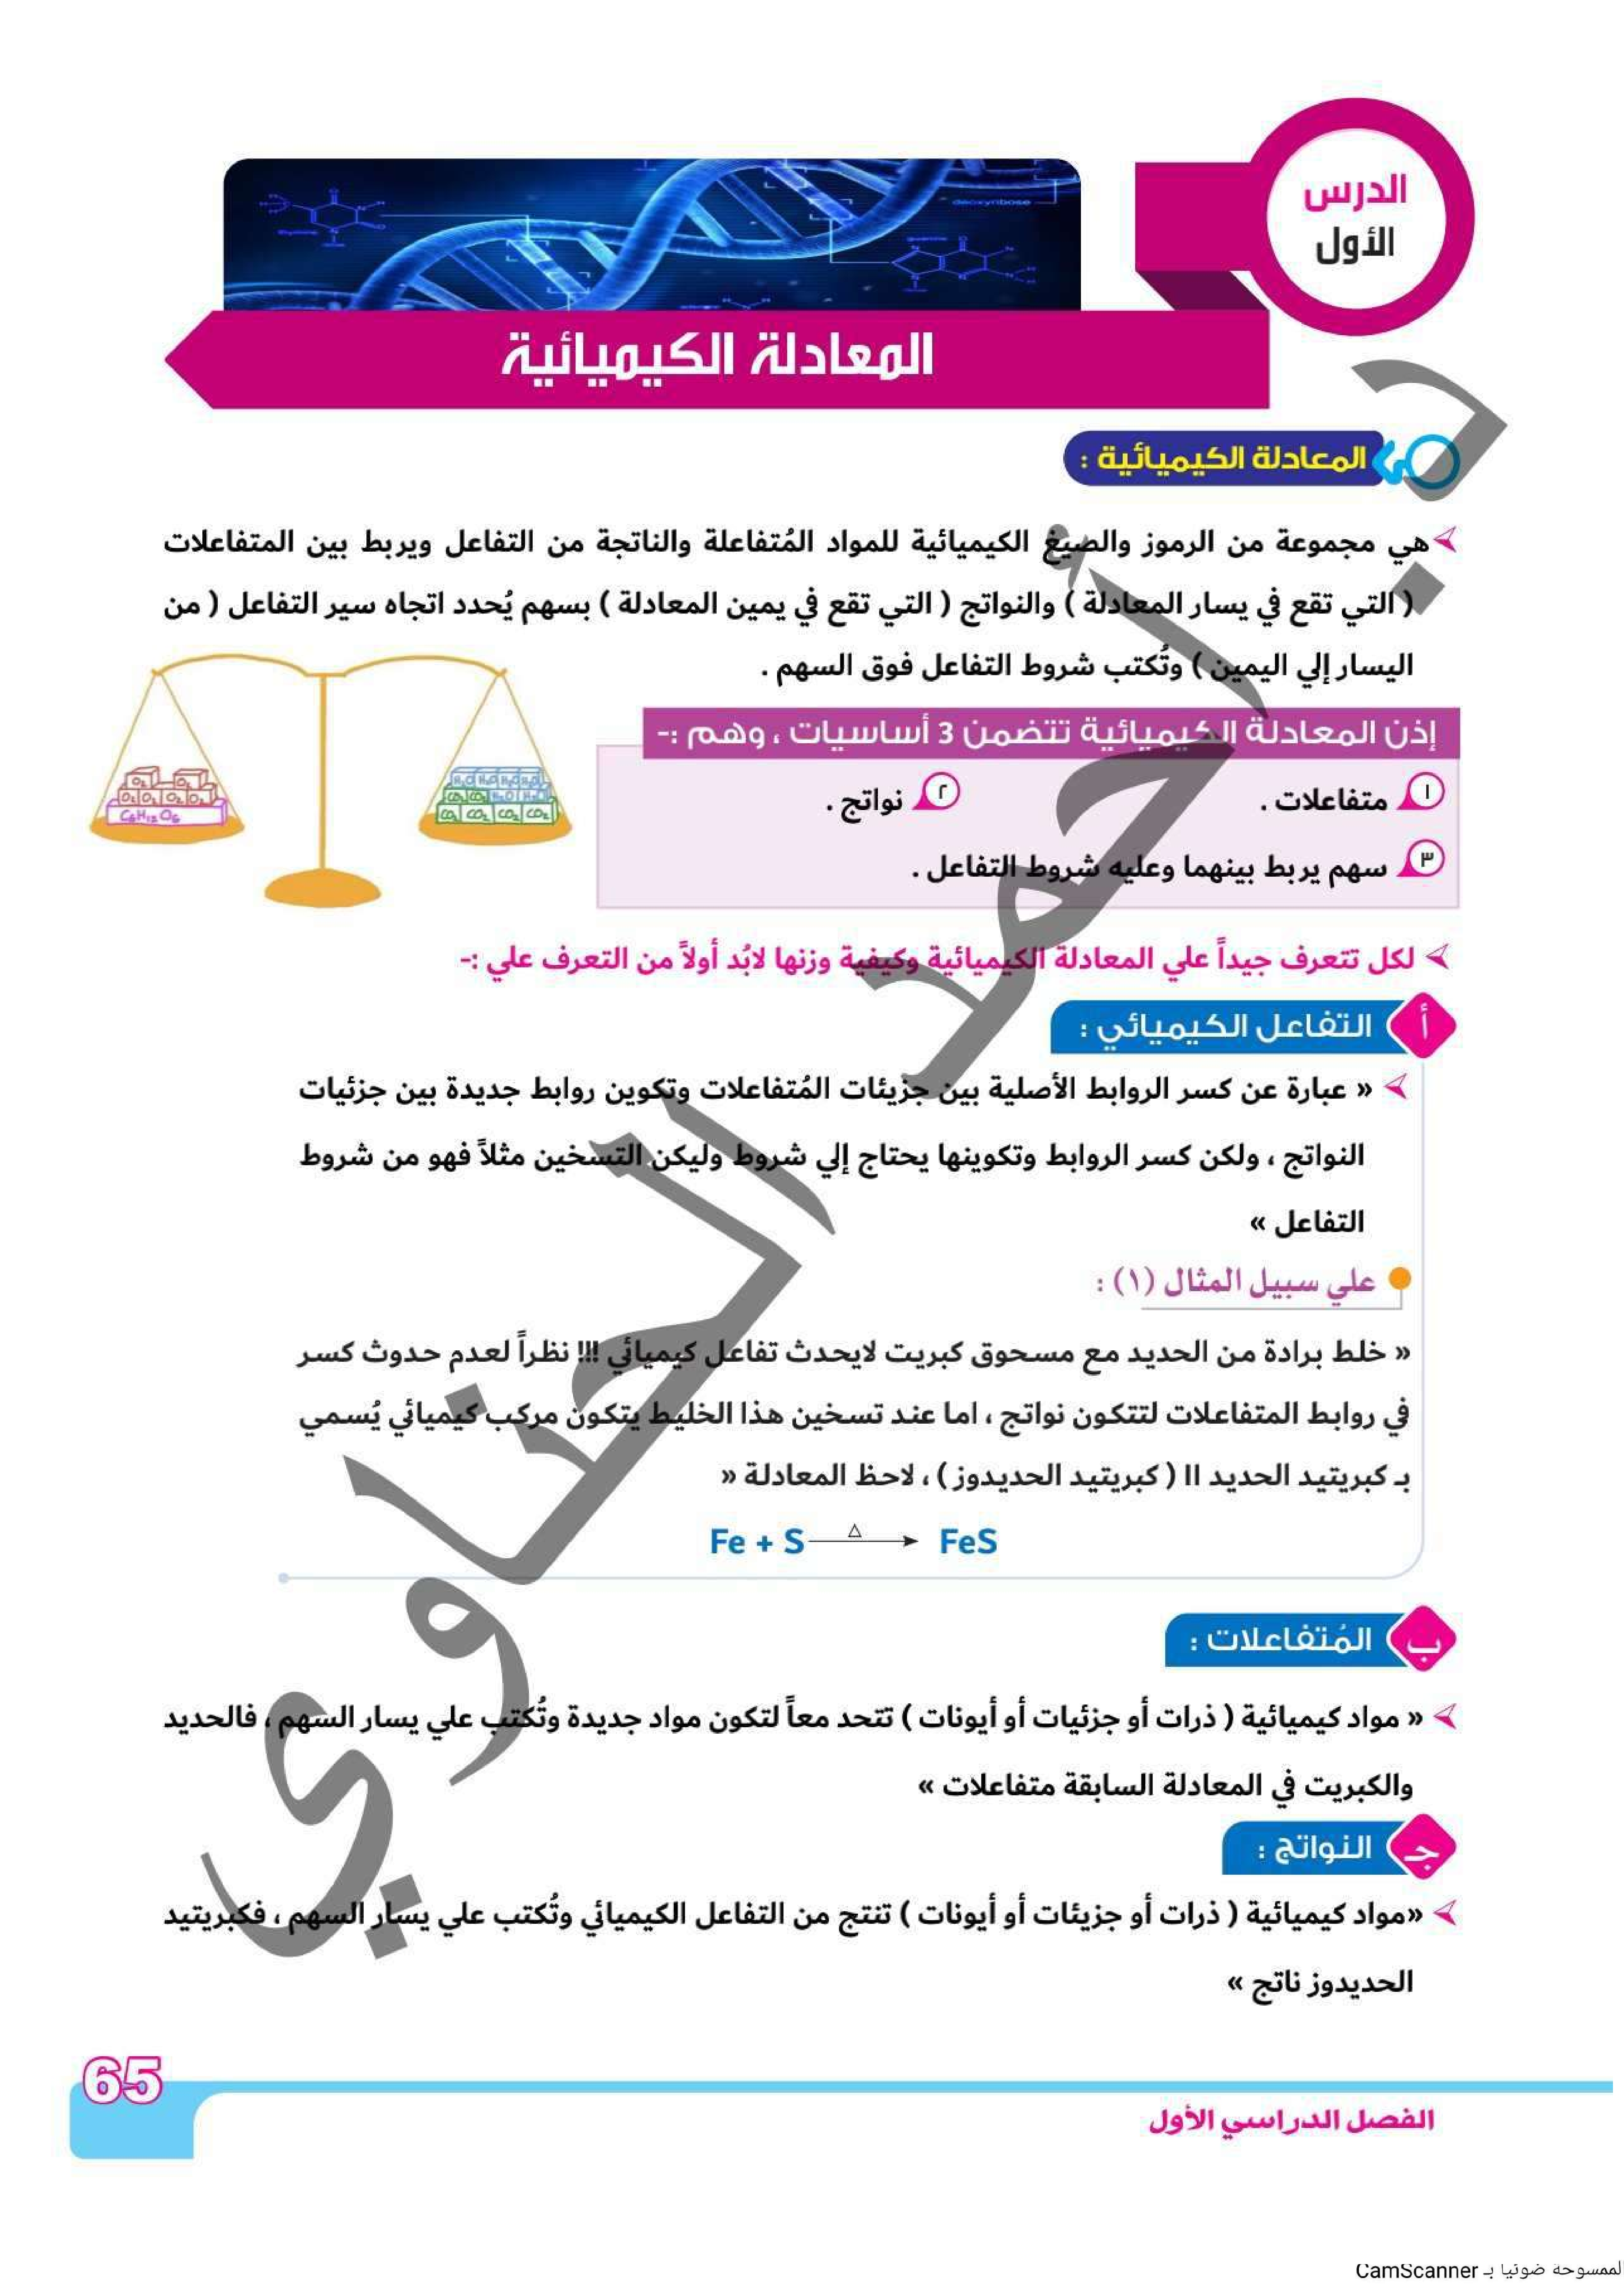 الدرس
الأول
المعادلة الكيميائية
المعادلة الكيميائية :
هي مجموعة من الرموز والصيغ الكيميائية للمواد المُتفاعلة والناتجة من التفاعل ويربط بين المتفاعلات
( التي تقع في يسار المعادلة ) والنواتج ( التي تقع في يمين المعادلة ) بسهم يُحدد اتجاه سير التفاعل ( من
اليسار إلي اليمين ) وتُكتب شروط التفاعل فوق السهم .
إذن المعادلة الكيميائية تتضمن 3 أساسيات ، وهم :-
١ متفاعلات .
٢ نواتج .
٣ سهم يربط بينهما وعليه شروط التفاعل .
لكل تتعرف جيداً علي المعادلة الكيميائية وكيفية وزنها لابُد أولاً من التعرف علي :-
أ التفاعل الكيميائي :
« عبارة عن كسر الروابط الأصلية بين جزيئات المُتفاعلات وتكوين روابط جديدة بين جزئيات
النواتج ، ولكن كسر الروابط وتكوينها يحتاج إلي شروط وليكن التسخين مثلاً فهو من شروط
التفاعل »
علي سبيل المثال (١) :
« خلط برادة من الحديد مع مسحوق كبريت لايحدث تفاعل كيميائي !!! نظراً لعدم حدوث كسر
في روابط المتفاعلات لتتكون نواتج ، اما عند تسخين هذا الخليط يتكون مركب كيميائي يُسمي
بـ كبريتيد الحديد II ( كبريتيد الحديدوز ) ، لاحظ المعادلة »
Fe + S △ → FeS
ب المُتفاعلات :
« مواد كيميائية ( ذرات أو جزئيات أو أيونات ) تتحد معاً لتكون مواد جديدة وتُكتب علي يسار السهم ، فالحديد
والكبريت في المعادلة السابقة متفاعلات »
جـ النواتج :
«مواد كيميائية ( ذرات أو جزيئات أو أيونات ) تنتج من التفاعل الكيميائي وتُكتب علي يسار السهم ، فكبريتيد
الحديدوز ناتج »
د. أحمد الحناوي
65
الفصل الدراسي الأول
الممسوحة ضوئيا بـ CamScanner